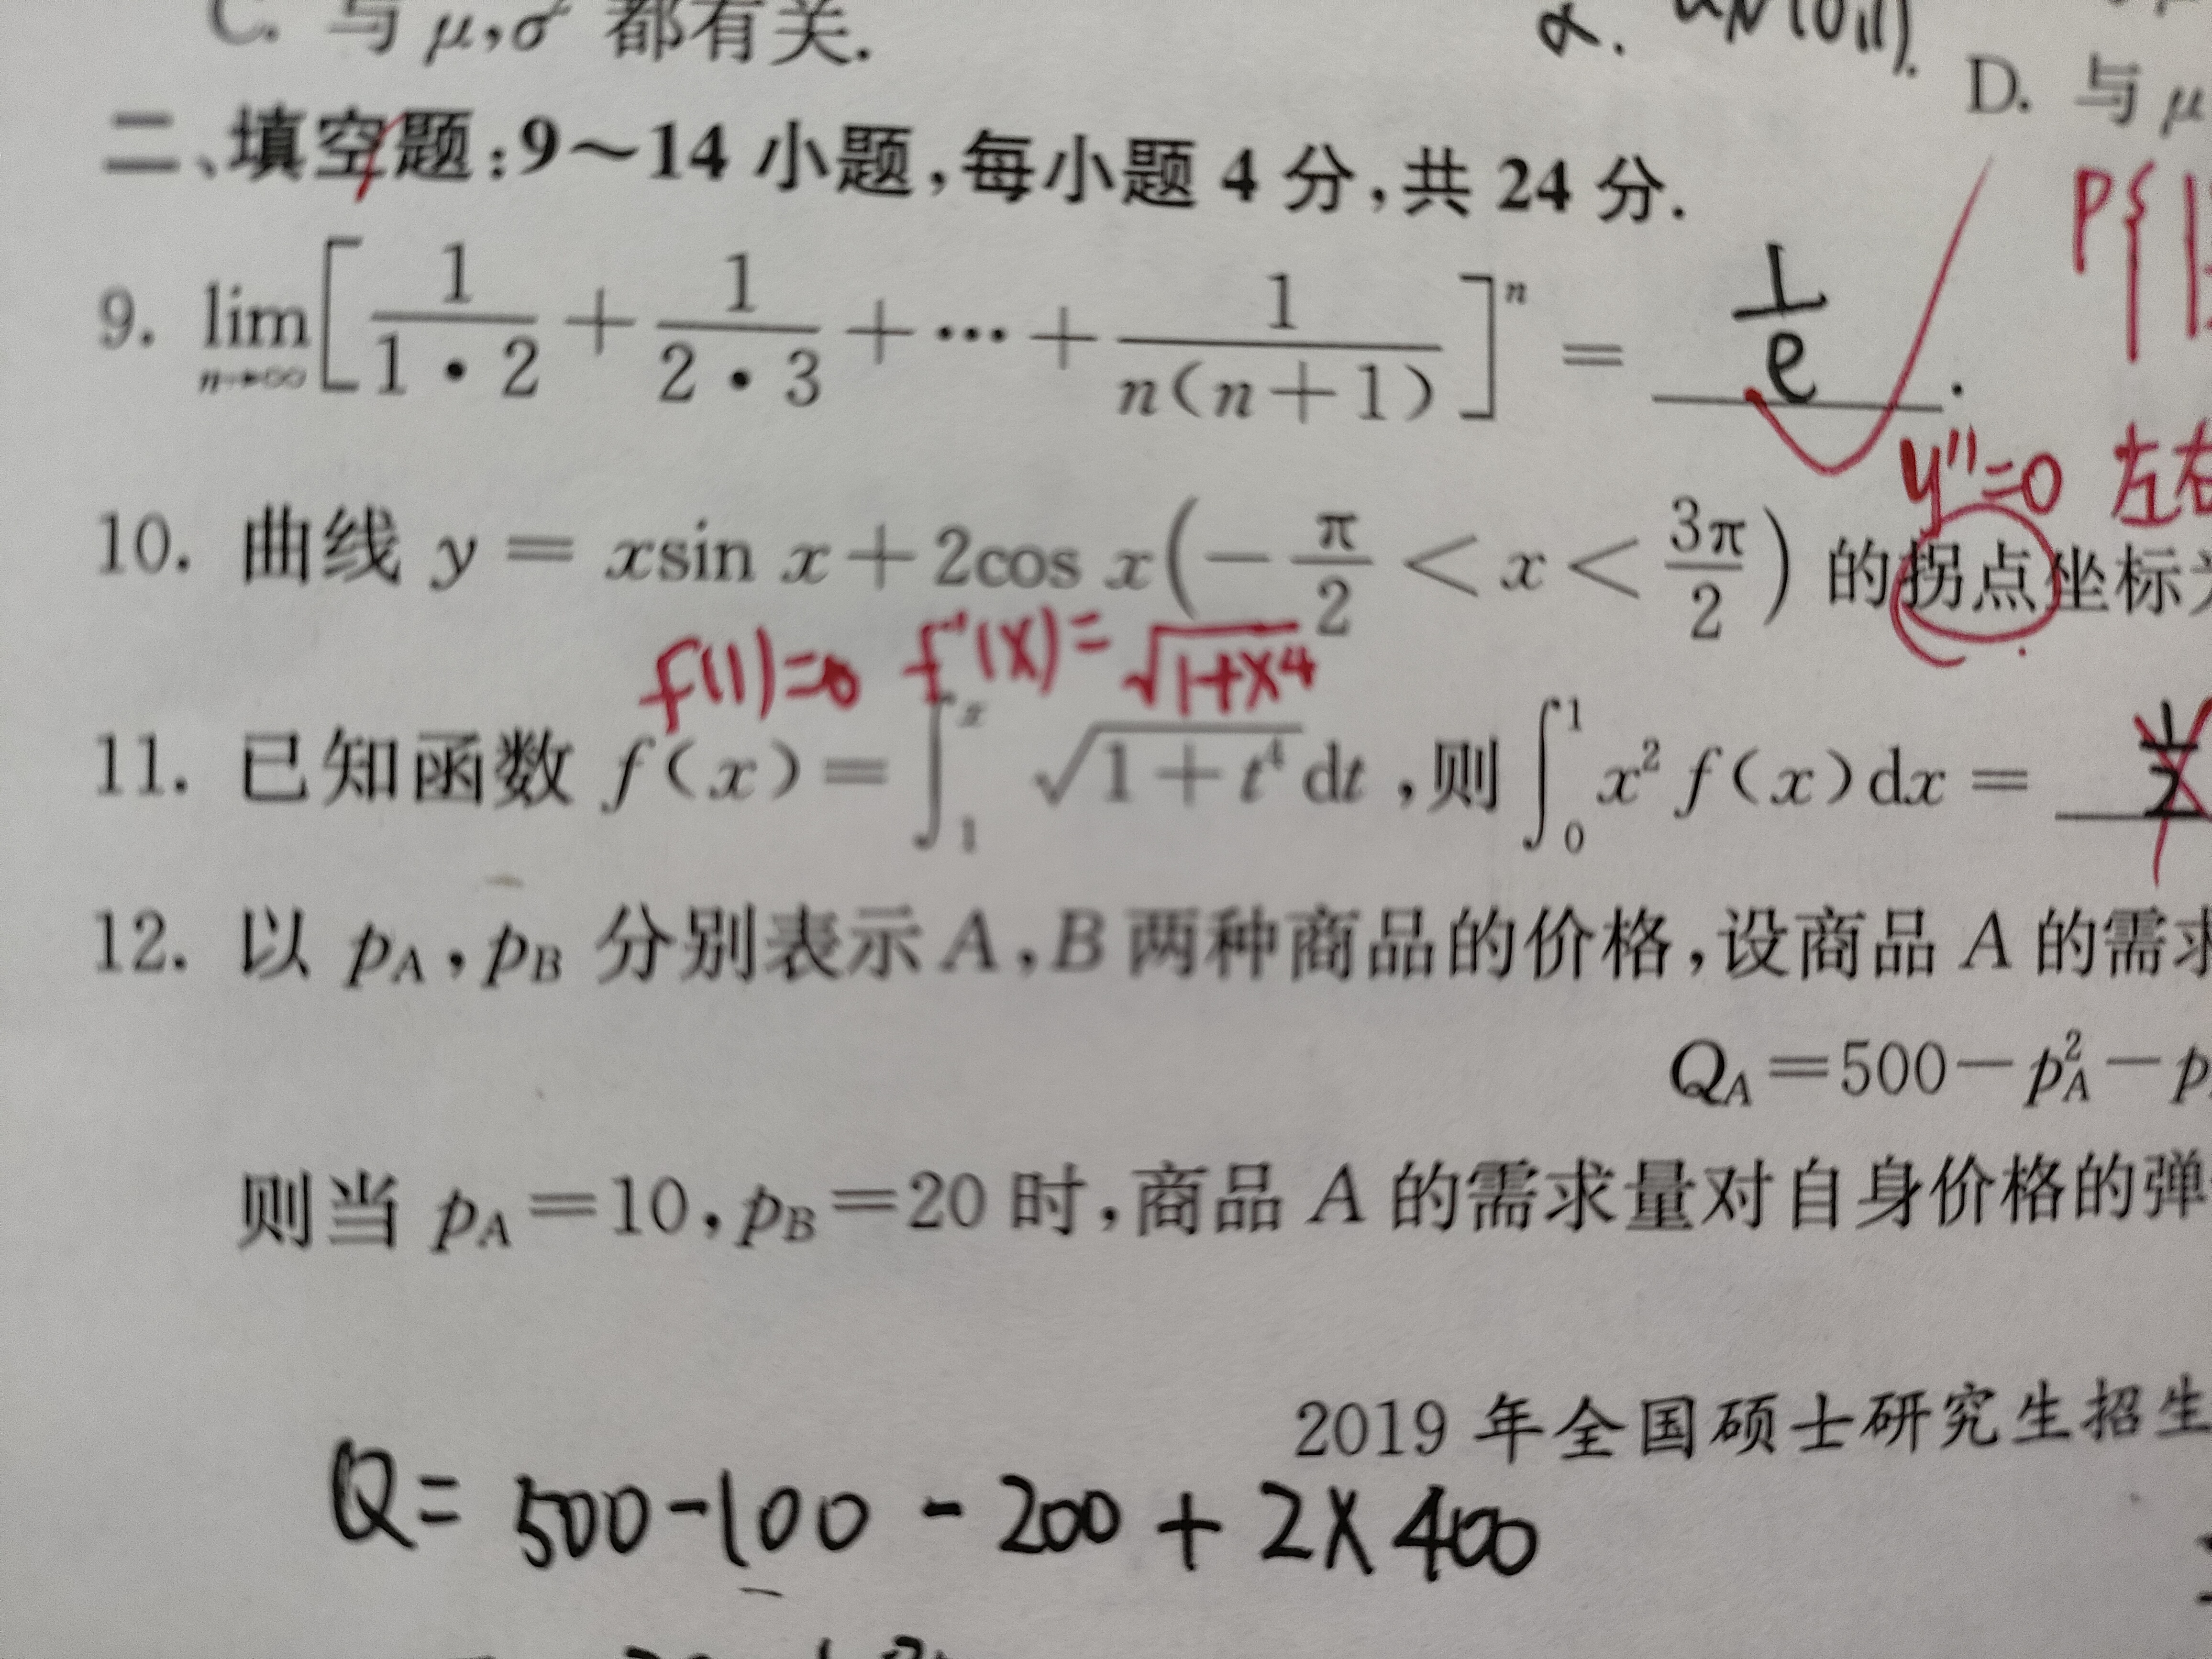 C. 与 μ,σ² 都有关.
α.
D. 与 μ
二、填空题:9～14 小题,每小题 4 分,共 24 分.
P{|
9. lim n→∞ [1/(1·2) + 1/(2·3) + ··· + 1/(n(n+1))]^n = 1/e .
y''=0 左右
10. 曲线 y = xsin x + 2cos x(-π/2 < x < 3π/2) 的拐点坐标为
f(1)=0 f'(x)= √(1+x⁴)
11. 已知函数 f(x) = ∫₁ˣ √(1+t⁴) dt ,则 ∫₀¹ x² f(x)dx =
12. 以 p_A, p_B 分别表示 A,B 两种商品的价格,设商品 A 的需求
Q_A = 500 - p_A² - p
则当 p_A = 10, p_B = 20 时,商品 A 的需求量对自身价格的弹
2019 年全国硕士研究生招生
Q= 500-100 - 200 + 2×400